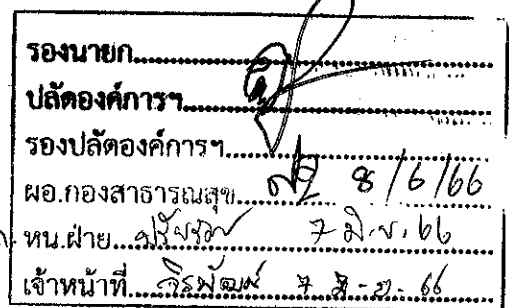 รองนายก
ปลัดองค์การฯ
รองปลัดองค์การฯ
ผอ.กองสาธารณสุข 8/6/66
หน.ฝ่าย 7 มิ.ย. 66
เจ้าหน้าที่ จิรพัฒน์ 7 มิ.ย. 66